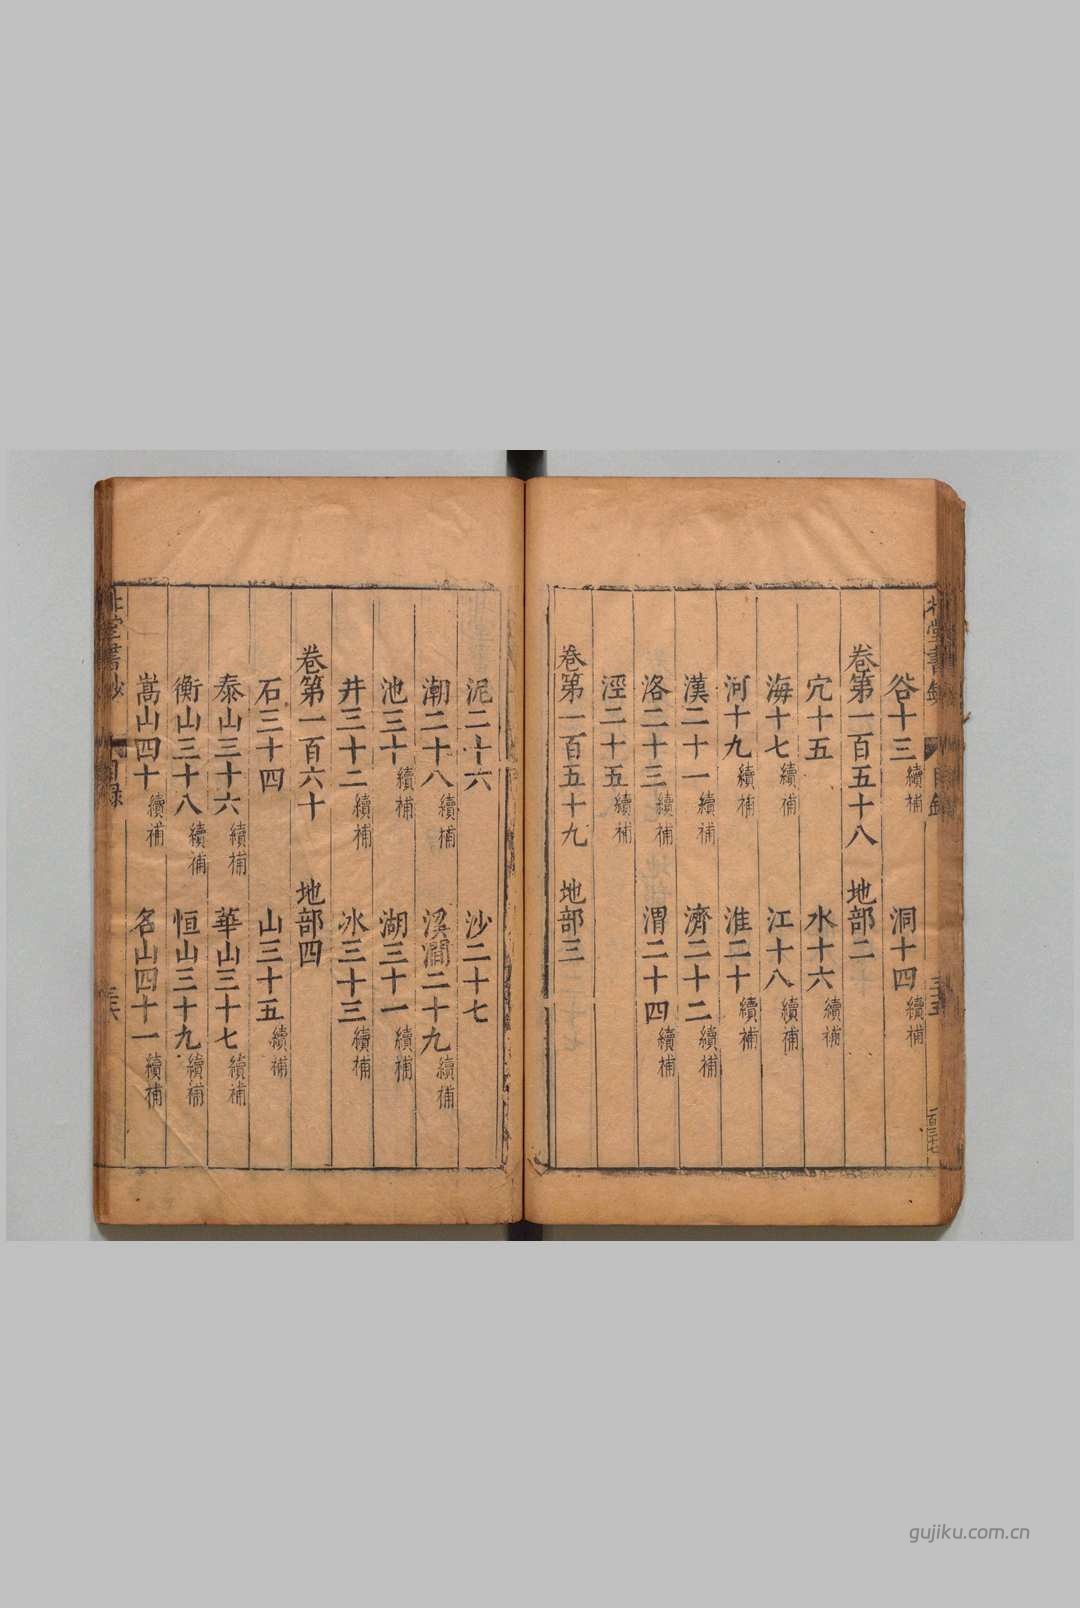 谷十三續補　洞十四續補
卷第一百五十八　地部二
穴十五　水十六續補
海十七續補　江十八續補
河十九續補　淮二十續補
漢二十一續補　濟二十二續補
洛二十三續補　渭二十四續補
涇二十五續補
卷第一百五十九　地部三
泥二十六　沙二十七
潮二十八續補　溪澗二十九續補
池三十續補　湖三十一續補
井三十二續補　冰三十三續補
卷第一百六十　地部四
石三十四　山三十五續補
泰山三十六續補　華山三十七續補
衡山三十八續補　恒山三十九續補
嵩山四十續補　名山四十一續補
北堂書鈔　目錄　三十六
gujiku.com.cn